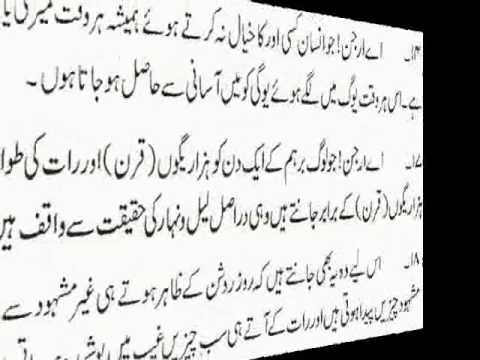 ۱۴۔ اے ارجن! جو انسان کسی اور کا خیال نہ کرتے ہوئے ہمیشہ ہر وقت میری یا
ہے۔ اس ہر وقت یوگ میں لگے ہوئے یوگی کو میں آسانی سے حاصل ہو جاتا ہوں۔
۱۷۔ اے ارجن! جو لوگ برہم کے ایک دن کو ہزار یگوں (قرن) اور رات کی طوا
ہزار یگوں (قرن) کے برابر جانتے ہیں وہی دراصل لیل و نہار کی حقیقت سے واقف ہیں
۱۸۔ اس لیے وہ یہ بھی جانتے ہیں کہ روز روشن کے ظاہر ہوتے ہی غیر مشہود سے
مشہود چیزیں پیدا ہوتی ہیں اور رات کے آتے ہی سب چیزیں غیب میں